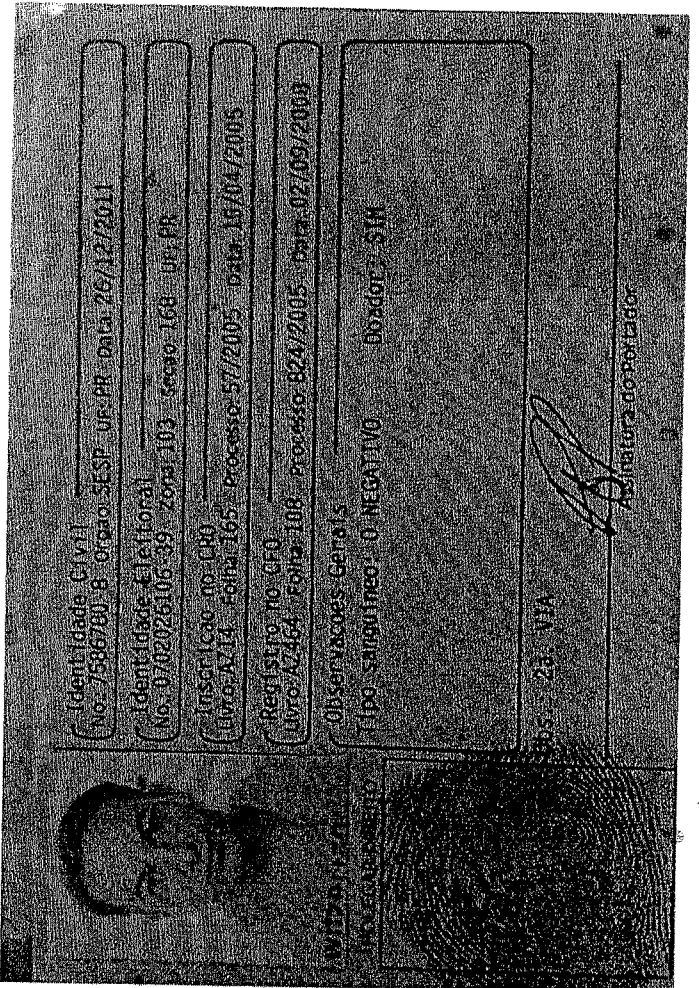 Identidade Civil
No. 7586700 8 Orgao SESP UF:PR Data 26/12/2011
Identidade Eleitoral
No. 0702026106-39 Zona 103 Secao 168 UF:PR
Inscricao no CRO
Livro-A714 Folha 165 Processo 577/2005 Data 16/04/2005
Registro no CFO
Livro-A7464 Folha 108 Processo 824/2005 Data 02/09/2008
Observacoes Gerais
Tipo sanguineo: O NEGATIVO Doador: SIM
Obs.: 2a. VIA
Assinatura do Portador